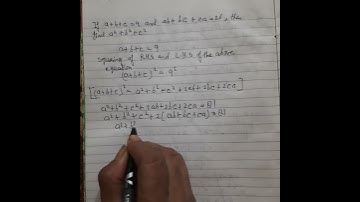 If a+b+c=9 and ab+bc+ca=26, then
find a²+b²+c²
a+b+c=9
squaring of RHS and LHS of the above
equation
(a+b+c)²=9²
[(a+b+c)²=a²+b²+c²+2ab+2bc+2ca]
a²+b²+c²+2ab+2bc+2ca=81
a²+b²+c²+2(ab+bc+ca)=81